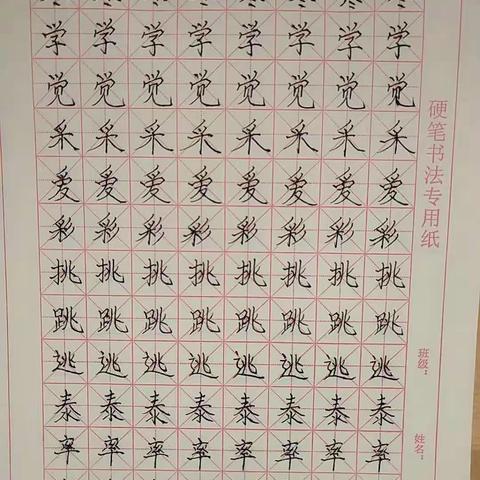 学学学学学学学学
觉觉觉觉觉觉觉觉
采采采采采采采采
爱爱爱爱爱爱爱爱
彩彩彩彩彩彩彩彩
挑挑挑挑挑挑挑挑
跳跳跳跳跳跳跳跳
逃逃逃逃逃逃逃逃
泰泰泰泰泰泰泰泰
率率率率率率率率
硬笔书法专用纸
班级：
姓名：